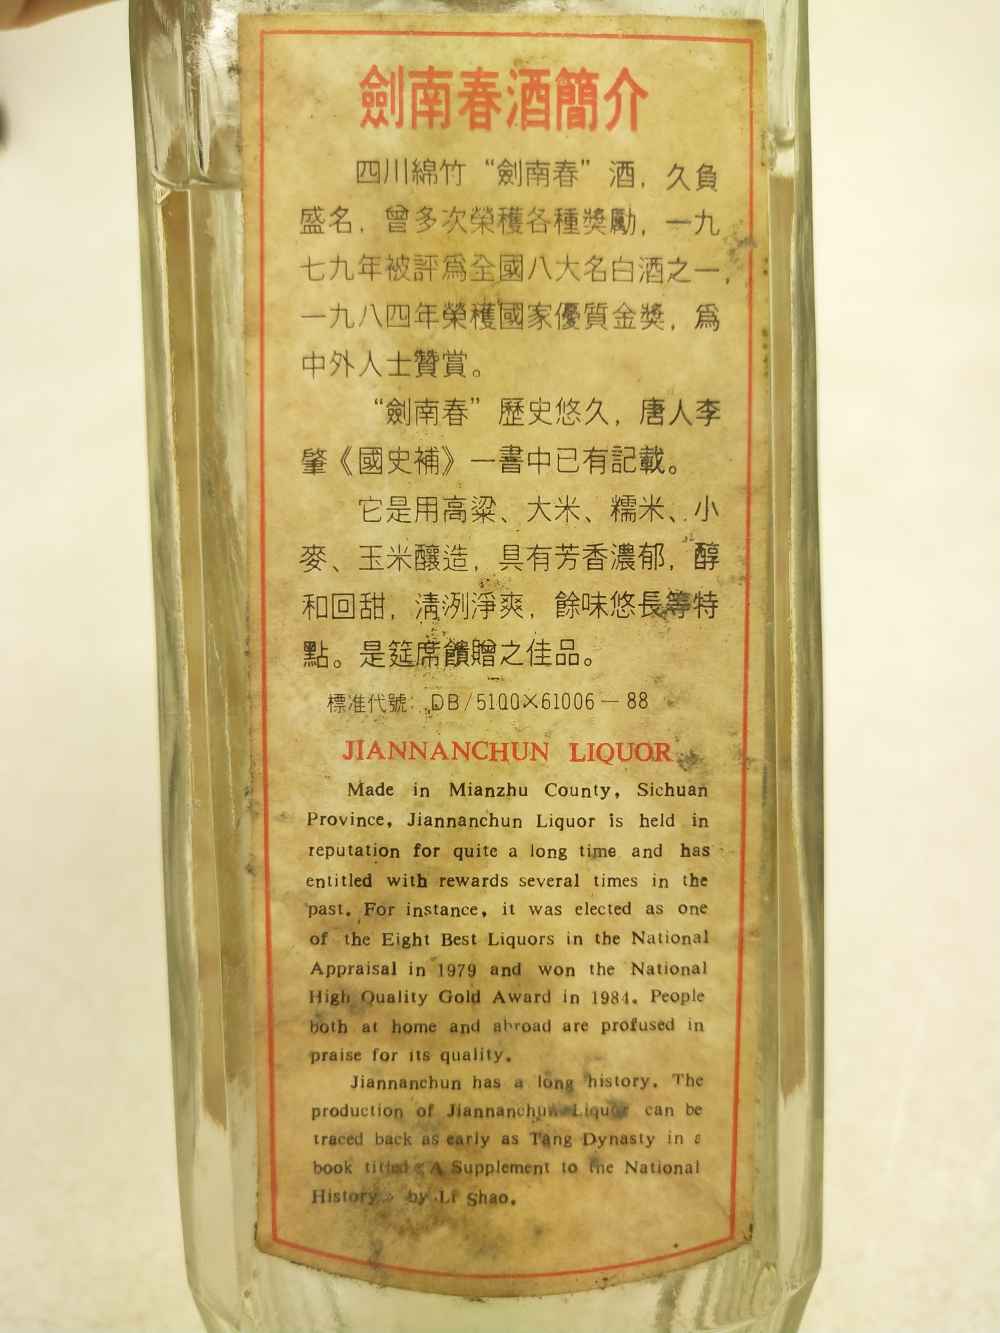 劍南春酒簡介
四川綿竹“劍南春”酒，久負
盛名，曾多次榮獲各種獎勵，一九
七九年被評爲全國八大名白酒之一，
一九八四年榮獲國家優質金獎，爲
中外人士贊賞。
“劍南春”歷史悠久，唐人李
肇《國史補》一書中已有記載。
它是用高粱、大米、糯米、小
麥、玉米釀造，具有芳香濃郁，醇
和回甜，清洌淨爽，餘味悠長等特
點。是筵席饋贈之佳品。
標准代號：DB/5100×61006－88
JIANNANCHUN LIQUOR
Made in Mianzhu County, Sichuan
Province, Jiannanchun Liquor is held in
reputation for quite a long time and has
entitled with rewards several times in the
past. For instance, it was elected as one
of the Eight Best Liquors in the National
Appraisal in 1979 and won the National
High Quality Gold Award in 1984. People
both at home and abroad are profused in
praise for its quality.
Jiannanchun has a long history. The
production of Jiannanchun Liquor can be
traced back as early as Tang Dynasty in a
book titled《A Supplement to the National
History》by Li Shao.